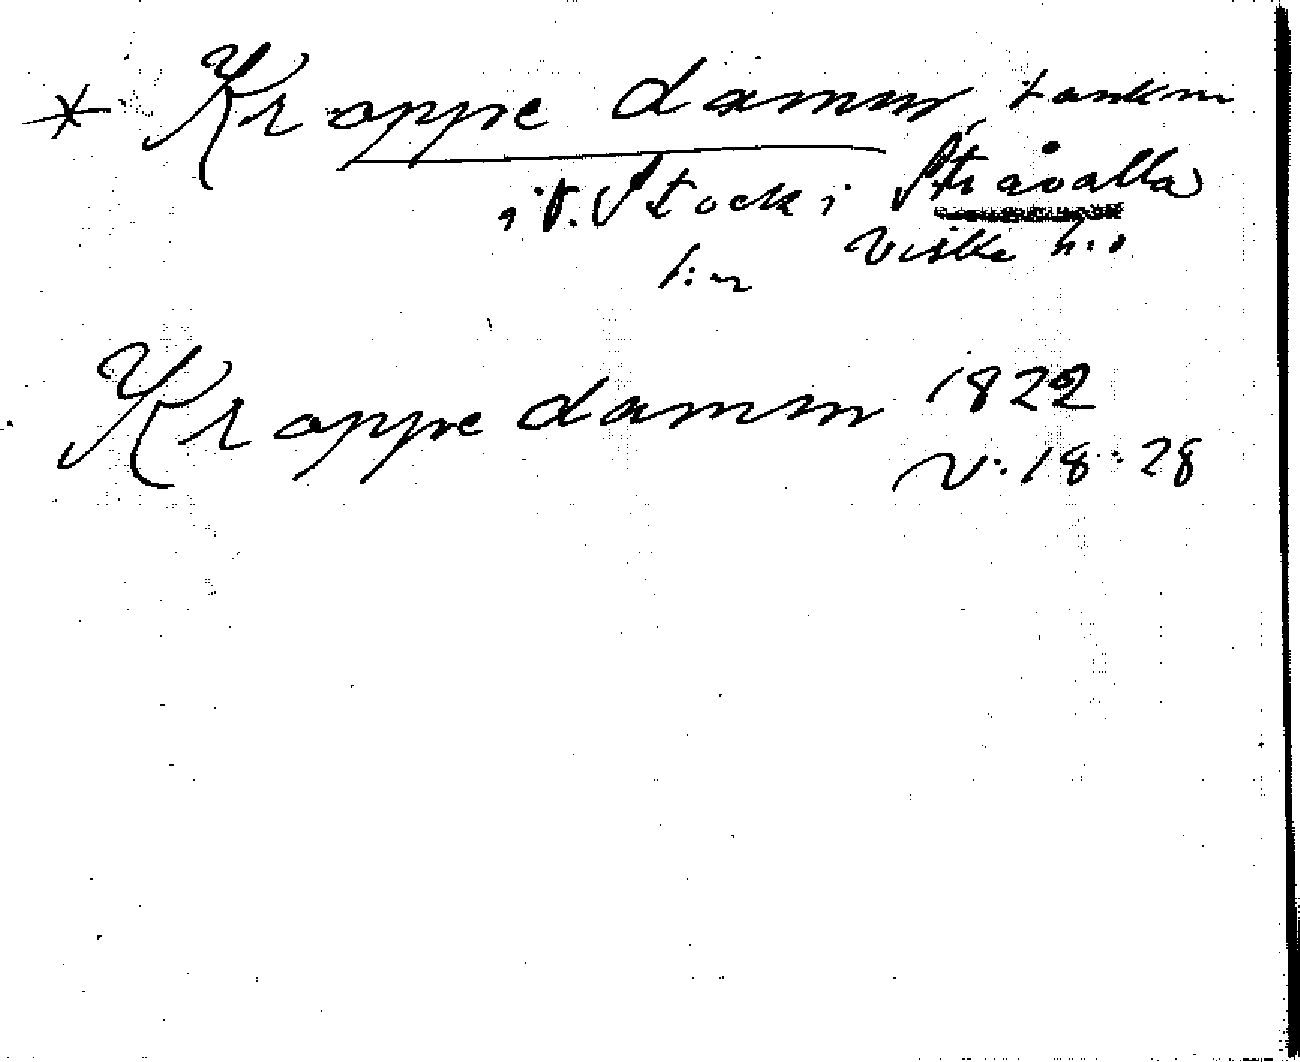 * Kroppe damm,
i V. Stock i Stråvalla
Viske h:d
Kroppe damm 1822
v. 18: 28